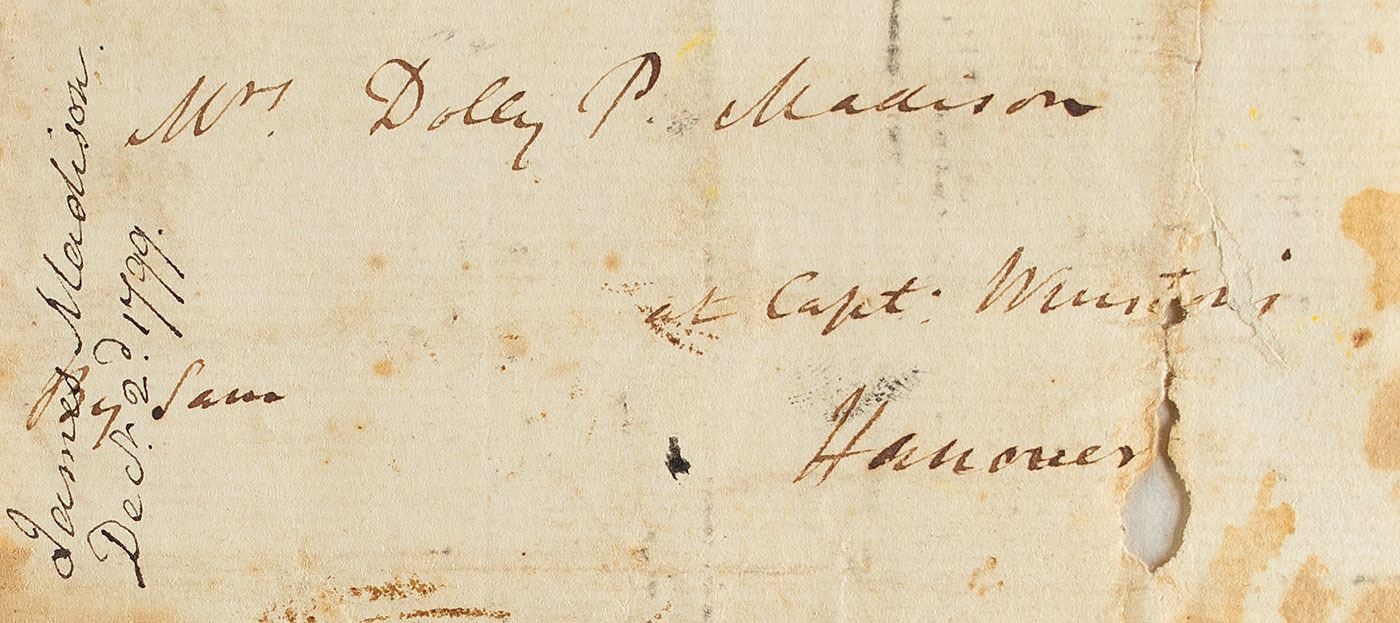 Mrs. Dolly P. Madison
at Capt: Winston's
Hanover
By Sam
James Madison.
Decr. 2d. 1799.